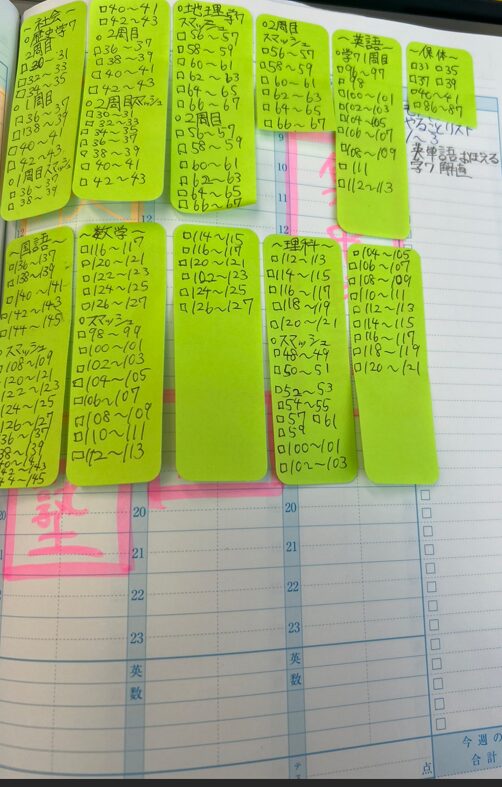 ~社会~
○歴史学ワ
2周目
□30~31
□32~33
□34~35
○1周目
□36~37
□38~39
□40~41
□42~43
○1周目スマッシュ
□36~37
□38~39
□40~41
□42~43
○2周目
□36~37
□38~39
□40~41
□42~43
○2周目スマッシュ
□30~31
□32~33
□34~35
□36~37
□38~39
□40~41
□42~43
○地理学ワ
スマッシュ
□56~57
□58~59
□60~61
□62~63
□64~65
□66~67
○2周目
□56~57
□58~59
□60~61
□62~63
□64~65
□66~67
○2周目
スマッシュ
□56~57
□58~59
□60~61
□62~63
□64~65
□66~67
~英語~
○学ワ1周目
□96~97
□98
□100~101
□102~103
□104~105
□106~107
□108~109
□111
□112~113
~保体~
□33 □35
□37 □39
□40~41
□86~87
やることリスト
英単語おぼえる
学ワ
~国語~
□136~137
□138~139
□140~141
□142~143
□144~145
○スマッシュ
□108~109
□120~121
□122~123
□124~125
□126~127
36~37
38~39
40~141
42~143
44~145
~数学~
□116~117
□120~121
□122~123
□124~125
□126~127
○スマッシュ
□98~99
□100~101
□102~103
□104~105
□106~107
□108~109
□110~111
□112~113
□114~115
□116~117
□120~121
□122~123
□124~125
□126~127
~理科~
□112~113
□114~115
□116~117
□118~119
□120~121
○スマッシュ
□48~49
□50~51
□52~53
□54~55
□57 □61
□59
□100~101
□102~103
□104~105
□106~107
□108~109
□110~111
□112~113
□114~115
□116~117
□118~119
□120~121
9
10
11
12
塾
20
21
22
23
英
数
20
21
22
23
英
数
点
今週の
合計